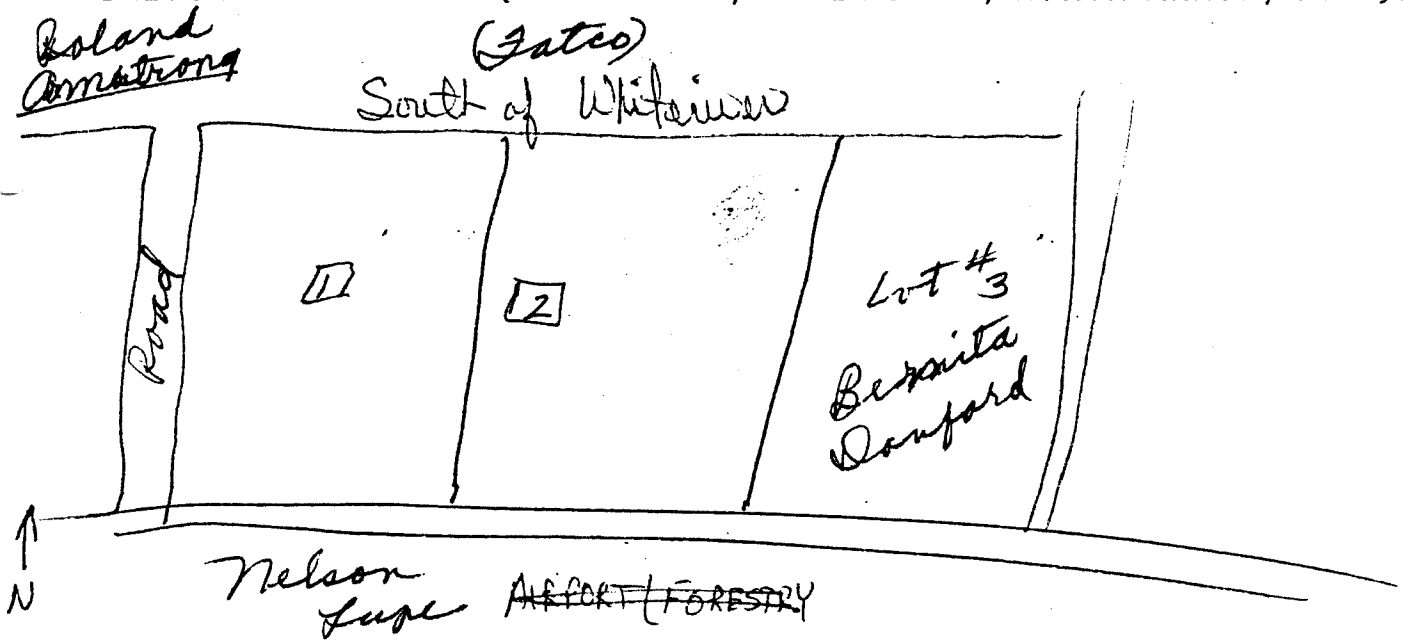 Roland
Armstrong
(Fatco)
South of Whiteriver
Road
1
2
Lot #3
Bernita
Danford
N
Nelson
Lupe
AIRPORT (FORESTRY